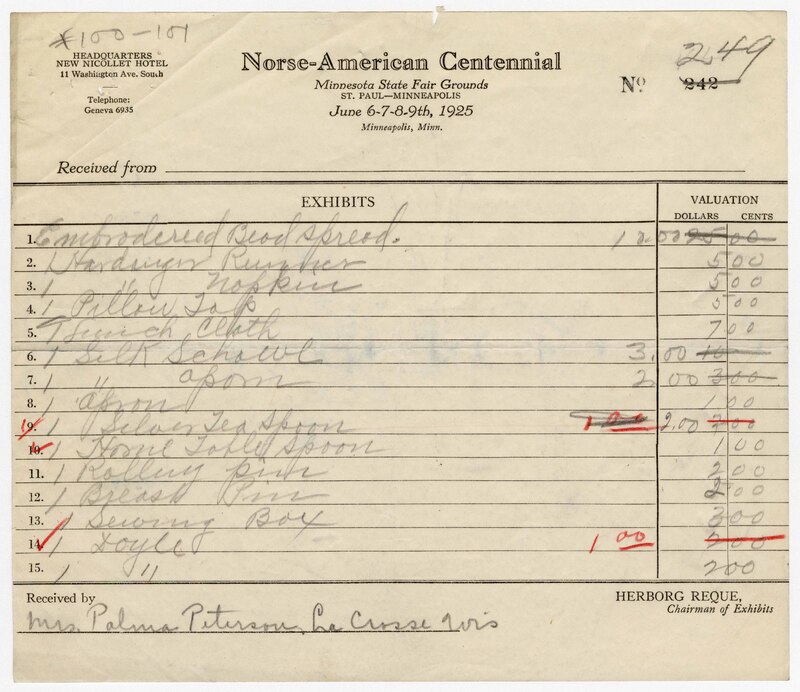 #100-101
HEADQUARTERS
NEW NICOLLET HOTEL
11 Washington Ave. South
Telephone:
Geneva 6935
Norse-American Centennial
Minnesota State Fair Grounds
ST. PAUL—MINNEAPOLIS
June 6-7-8-9th, 1925
Minneapolis, Minn.
249
Nº 242
Received from
EXHIBITS
VALUATION
DOLLARS CENTS
1. Embrodereed Bead Spread. 12.00 25 00
2. 1 Hardinger Runner 5 00
3. 1 " Napkin 5 00
4. 1 Pillow Top 5 00
5. 1 Lunch Cloth 7 00
6. 1 Silk Schawl 3.00 10
7. 1 " aporn 2 00 3 00
8. 1 Apron 1 00
9. 1 Silver Tea Spoon 1 00 2.00 2 00
10. 1 Horne Table Spoon 1 00
11. 1 Rolling pin 2 00
12. 1 Breast Pin 2 00
13. 1 Sewing Box 3 00
14. 1 Doyle 1 00 2 00
15. 1 " 2 00
Received by
HERBORG REQUE,
Chairman of Exhibits
Mrs. Palma Peterson, La Crosse Wis